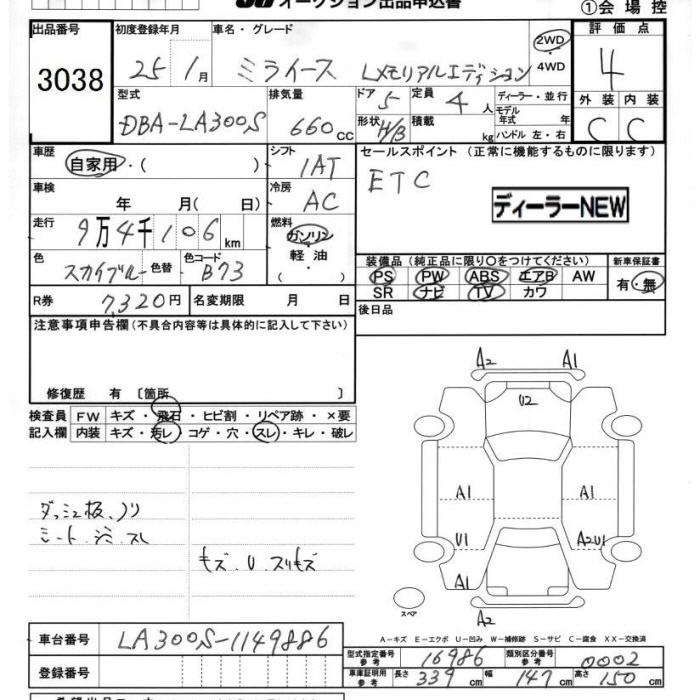 オークション出品申込書
①会場控
出品番号 初度登録年月 車名・グレード 評価点
3038 25 1月 ミライース Lメモリアルエディション 2WD・4WD 4
型式 排気量 ドア 5 定員 4人 ディーラー・並行 外装 内装
DBA-LA300S 660cc 形状 H/B 積載 kg モデル年式 年 ハンドル 左・右 C C
車歴 自家用・( ) シフト 1AT セールスポイント(正常に機能するものに限ります)
車検 年 月( 日) 冷房 AC ETC
ディーラーNEW
走行 9万4千106km 燃料 ガソリン・軽油・( )
色 スカイブルー 色替 色コード B73
装備品(純正品に限り○をつけてください) 新車保証書
PS PW ABS エアB AW 有・無
SR ナビ TV カワ
R券 7,320円 名変期限 月 日
後日品
注意事項申告欄(不具合内容等は具体的に記入して下さい)
修復歴 有〔箇所 〕
検査員記入欄 FW キズ・飛石・ヒビ割・リペア跡・×要
内装 キズ・汚レ・コゲ・穴・スレ・キレ・破レ
ダッシュ板、ノリ
シート.シミ.スレ
キズ.U.スリキズ
A2 A1
U2
A1 A1
U1 A2U1
A1
A2
スペア
A-キズ E-エクボ U-凹み W-補修跡 S-サビ C-腐食 XX-交換済
車台番号 LA300S-1149886
型式指定番号 参考 16986 類別区分番号 参考 0002
登録番号
車庫証明用 参考 長さ 339cm 幅 147cm 高さ 150cm